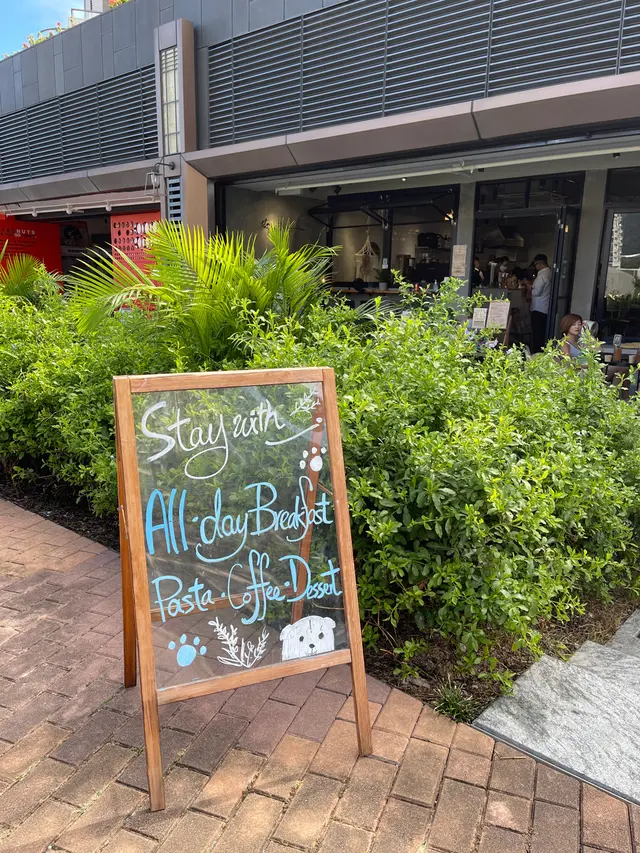 Stay with
All·day Breakfast
Pasta·Coffee·Dessert